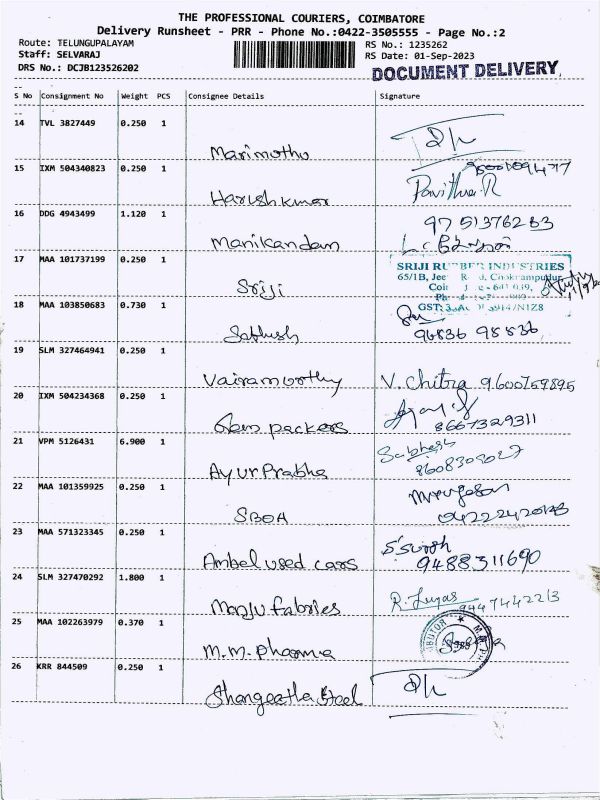 THE PROFESSIONAL COURIERS, COIMBATORE
Delivery Runsheet - PRR - Phone No.:0422-3505555 - Page No.:2
Route: TELUNGUPALAYAM RS No.: 1235262
Staff: SELVARAJ RS Date: 01-Sep-2023
DRS No.: DCJB123526202 DOCUMENT DELIVERY
S No Consignment No Weight PCS Consignee Details Signature
14 TVL 3827449 0.250 1
Marimuthu
15 IXM 504340823 0.250 1
Harish kumar Pavithra R
16 DDG 4943499 1.120 1 9751376263
Manikandam
17 MAA 101737199 0.250 1 SRIJI RUBBER INDUSTRIES
65/1B, Chokrampudur,
Sriji Coi
18 MAA 103850683 0.730 1 GST:
Sathish 96836 98836
19 SLM 327464941 0.250 1
Vairamoorthy V. Chitra 9600759895
20 IXM 504234368 0.250 1
packers 8667329311
21 VPM 5126431 6.900 1 Sabhesh
Ayur Prabha
22 MAA 101359925 0.250 1 Murugesan
SBOA
23 MAA 571323345 0.250 1
Ambel used cars 9488311690
24 SLM 327470292 1.800 1
Manju fabries R.
25 MAA 102263979 0.370 1
M.M. pharma
26 KRR 844509 0.250 1
Shangeetha Steel